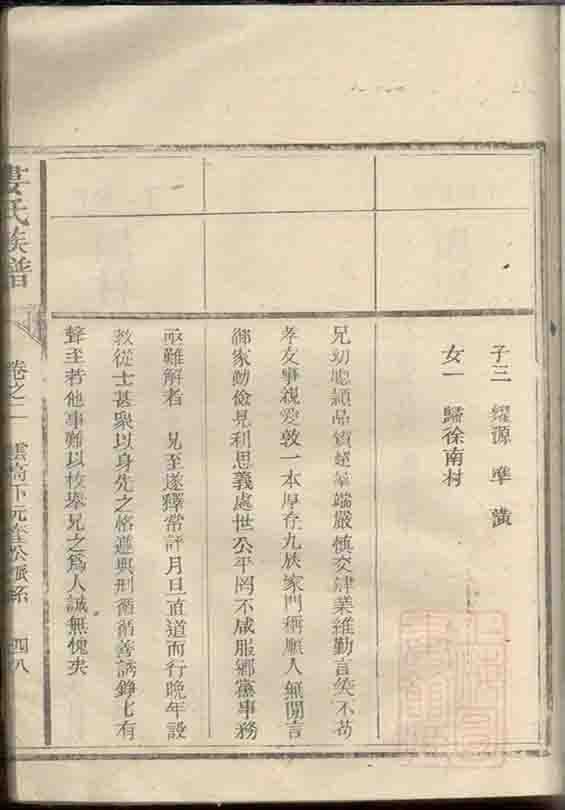 子三 耀源 準 潢
女一 歸徐南村
兄幼聰穎品質超羣端嚴慎交肄業維勤言笑不苟
孝友事親愛敦一本厚在九族家門稱願人無間言
御家勤儉見利思義處世公平罔不咸服鄉黨事務
亟難解者 兄至遂釋常評月旦直道而行晚年設
教從士甚眾以身先之恪遵典刑循循善誘錚匕有
聲至若他事難以枚舉兄之為人誠無愧矣
婁氏族譜 卷之二 四八